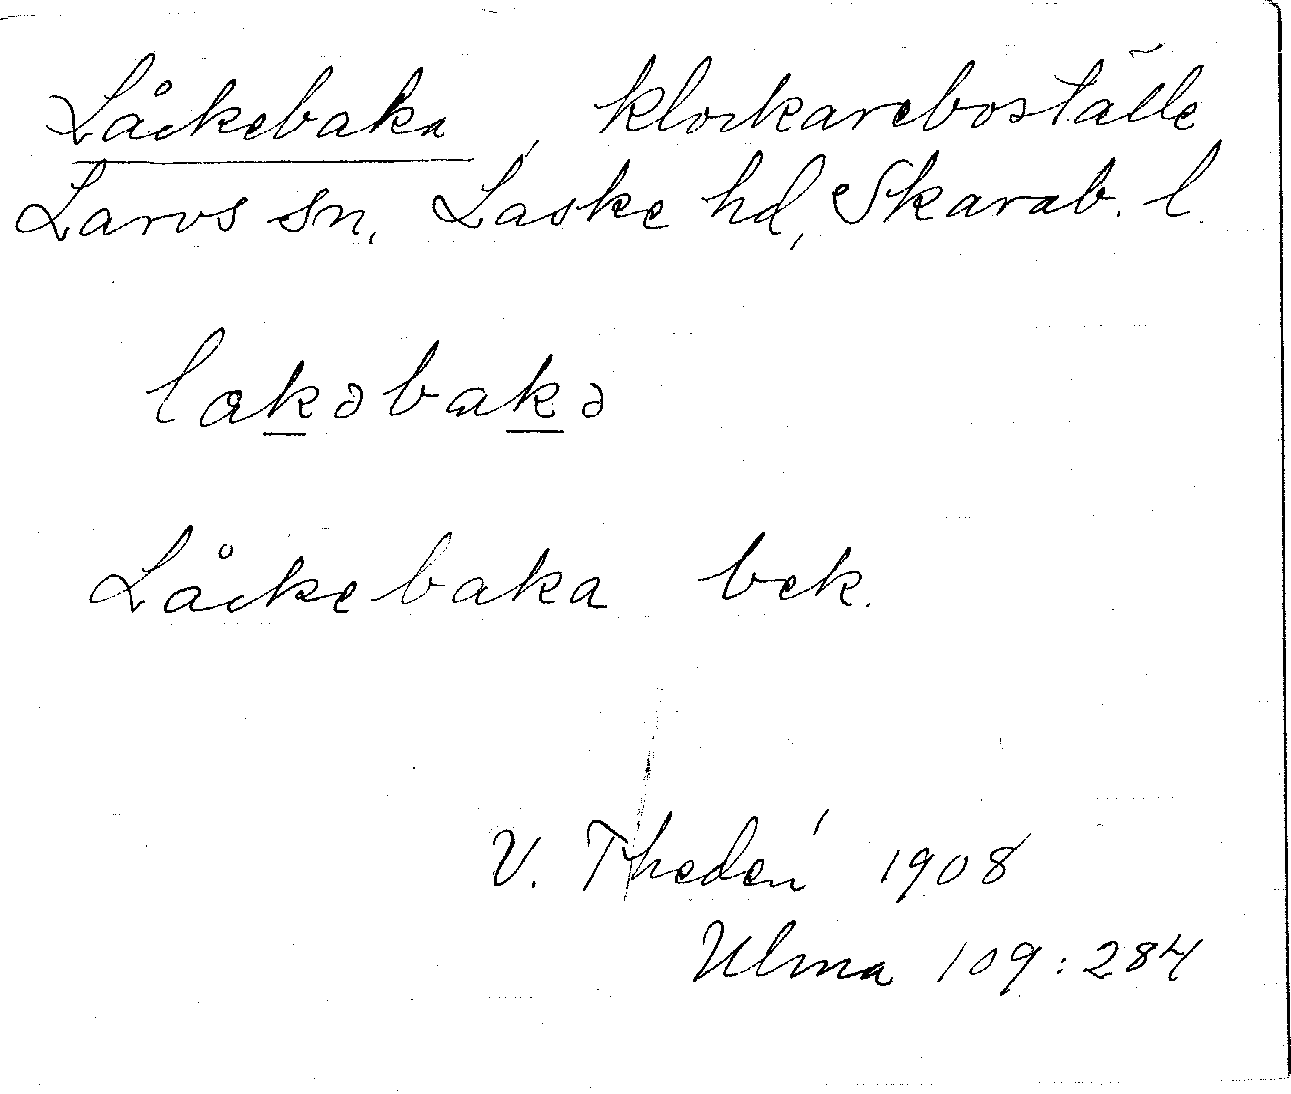 Låckebaka, klockareboställe
Larvs sn, Laske hd, Skarab. l.
lakəbakə
Låckebaka bek.
V. Thedén 1908
Ulma 109:284